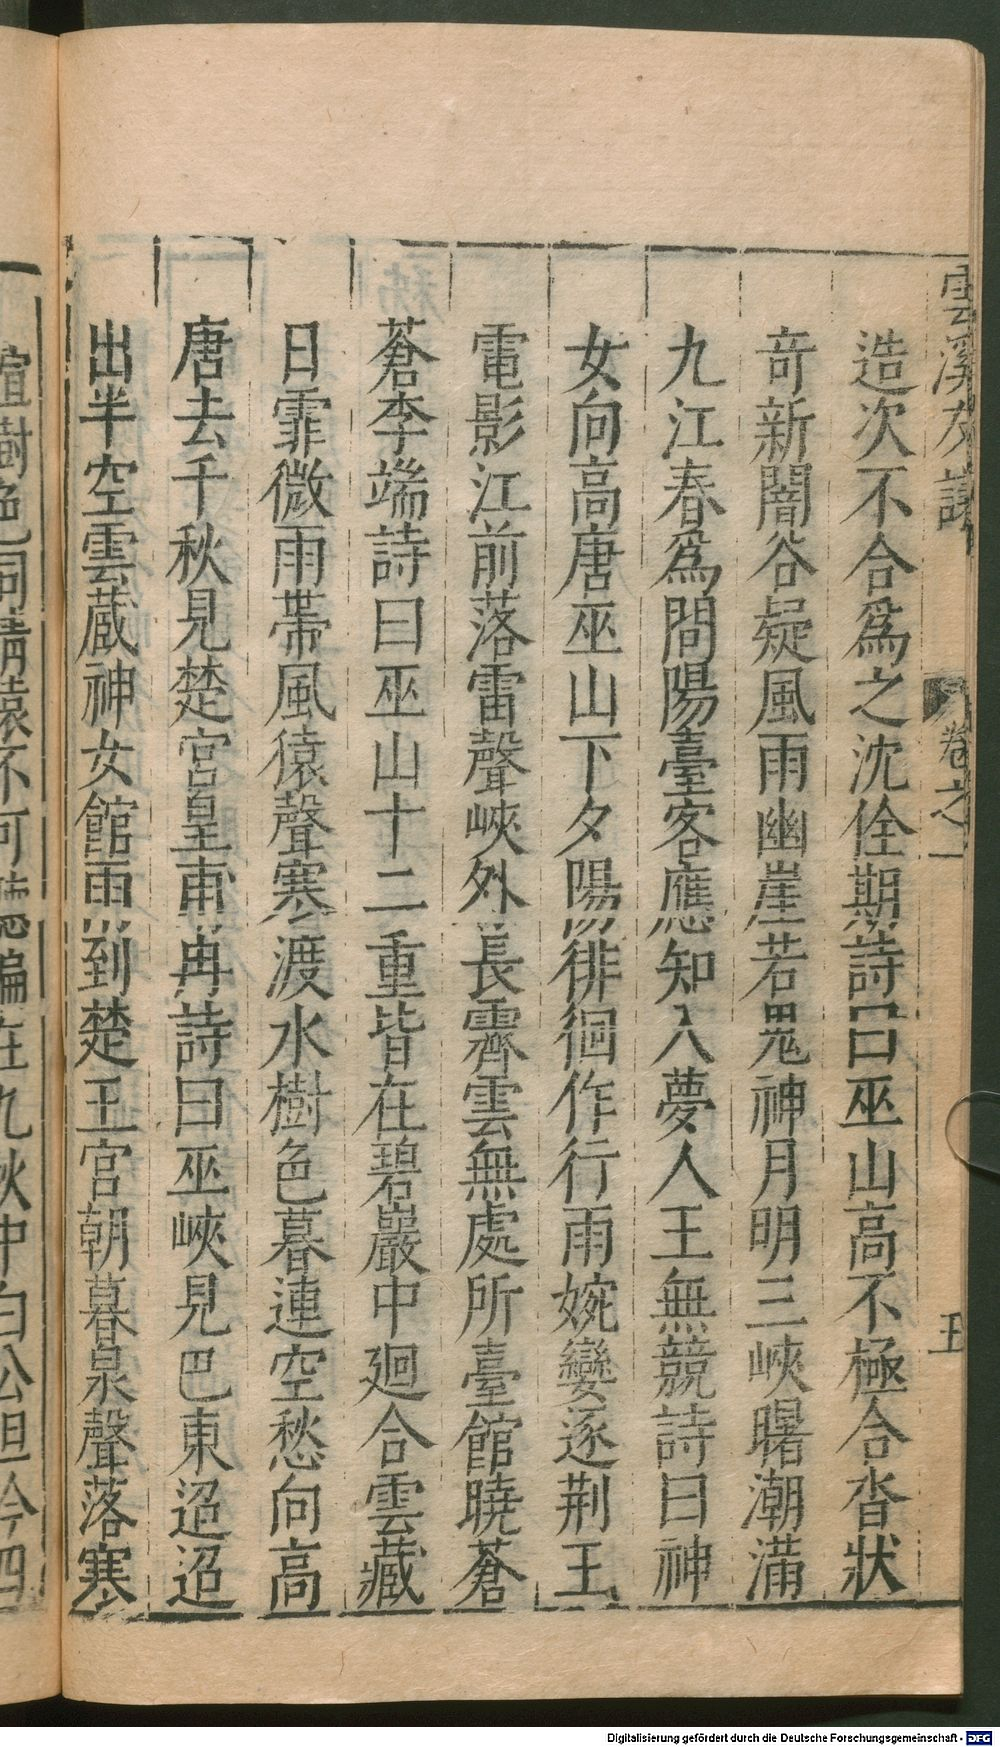 雲溪友議
卷之一
五
造次不合爲之沈佺期詩曰巫山高不極合沓狀
奇新闇谷疑風雨幽崖若鬼神月明三峽曙潮滿
九江春爲問陽臺客應知入夢人王無競詩曰神
女向高唐巫山下夕陽徘徊作行雨婉孌逐荆王
電影江前落雷聲峽外長霽雲無處所臺館曉蒼
蒼李端詩曰巫山十二重皆在碧巖中廻合雲藏
日霏微雨帶風猿聲寒渡水樹色暮連空愁向高
唐去千秋見楚宮皇甫冉詩曰巫峽見巴東迢迢
出半空雲藏神女館雨到楚王宮朝暮泉聲落寒
暄樹色同猿不可聽偏在九秋中白公但吟四
Digitalisierung gefördert durch die Deutsche Forschungsgemeinschaft - DFG